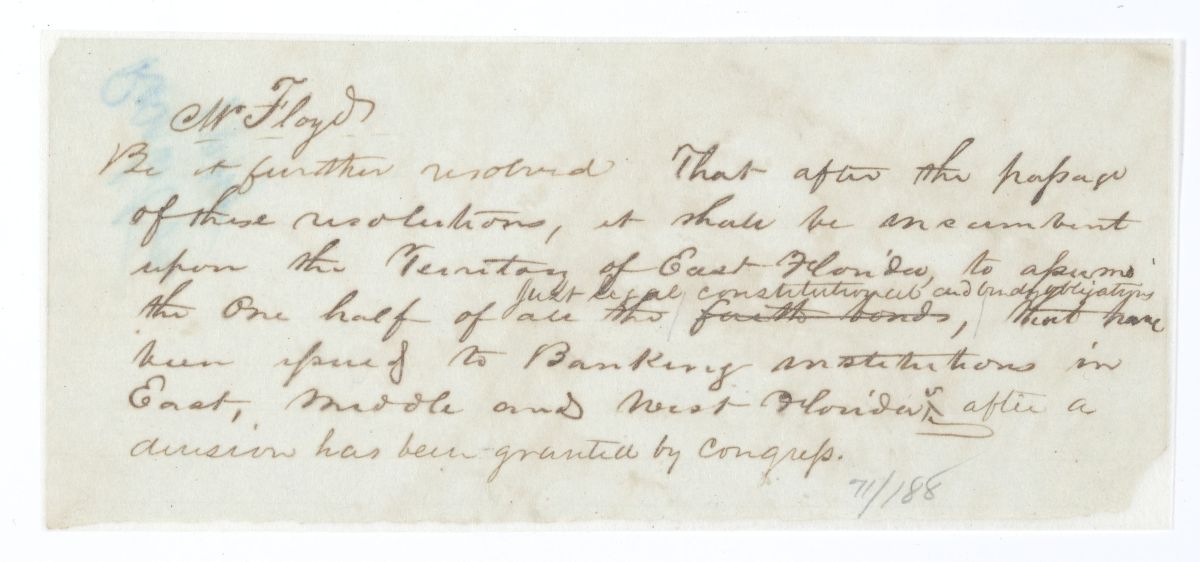 Mr Floyd
Be it further resolved That after the passage
of these resolutions, it shall be incumbent
upon the Territory of East Florida, to assume
just legal constitutional and binding obligations
the One half of all the faith bonds, that have
been issued to Banking institutions in
East, Middle and West Florida, after a
division has been granted by Congress.
71/188